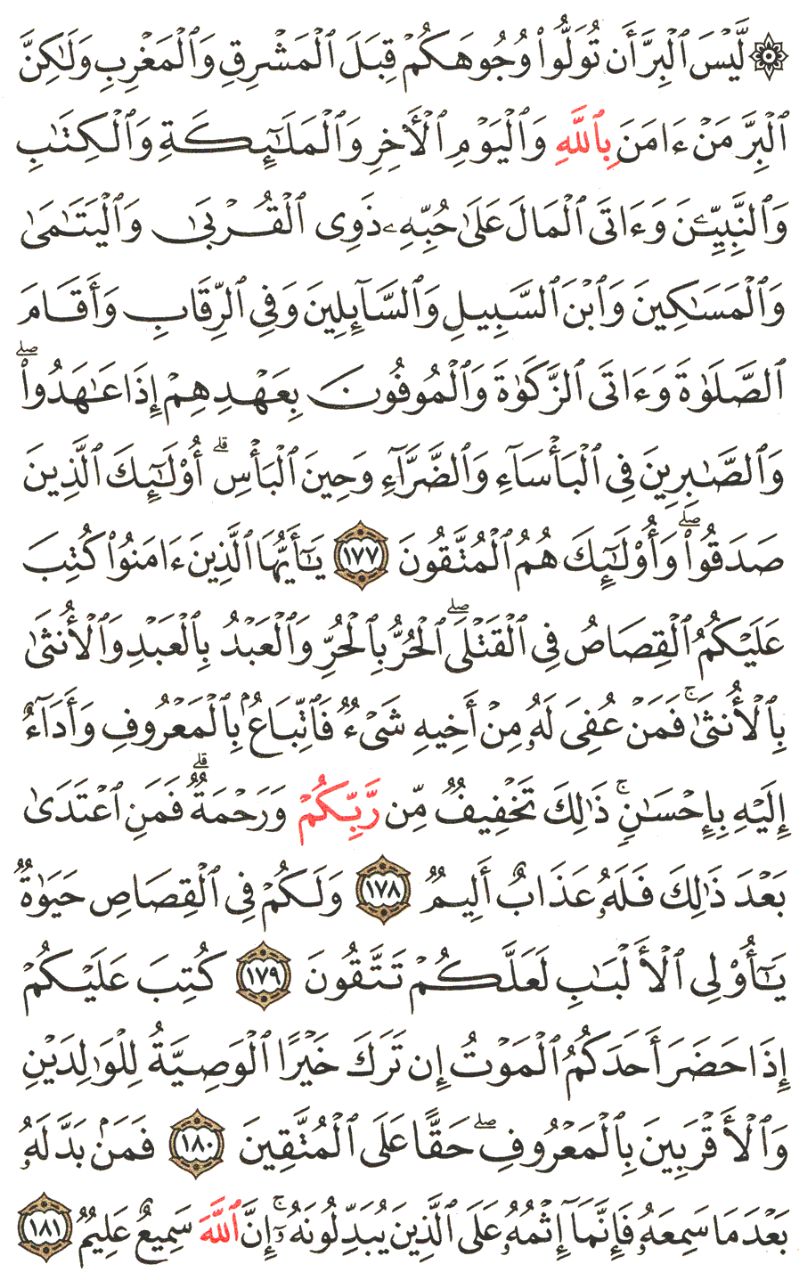 ۞ لَّيْسَ ٱلْبِرَّ أَن تُوَلُّوا۟ وُجُوهَكُمْ قِبَلَ ٱلْمَشْرِقِ وَٱلْمَغْرِبِ وَلَـٰكِنَّ
ٱلْبِرَّ مَنْ ءَامَنَ بِٱللَّهِ وَٱلْيَوْمِ ٱلْـَٔاخِرِ وَٱلْمَلَـٰٓئِكَةِ وَٱلْكِتَـٰبِ
وَٱلنَّبِيِّـۧنَ وَءَاتَى ٱلْمَالَ عَلَىٰ حُبِّهِۦ ذَوِى ٱلْقُرْبَىٰ وَٱلْيَتَـٰمَىٰ
وَٱلْمَسَـٰكِينَ وَٱبْنَ ٱلسَّبِيلِ وَٱلسَّآئِلِينَ وَفِى ٱلرِّقَابِ وَأَقَامَ
ٱلصَّلَوٰةَ وَءَاتَى ٱلزَّكَوٰةَ وَٱلْمُوفُونَ بِعَهْدِهِمْ إِذَا عَـٰهَدُوا۟ ۖ
وَٱلصَّـٰبِرِينَ فِى ٱلْبَأْسَآءِ وَٱلضَّرَّآءِ وَحِينَ ٱلْبَأْسِ ۗ أُو۟لَـٰٓئِكَ ٱلَّذِينَ
صَدَقُوا۟ ۖ وَأُو۟لَـٰٓئِكَ هُمُ ٱلْمُتَّقُونَ ١٧٧ يَـٰٓأَيُّهَا ٱلَّذِينَ ءَامَنُوا۟ كُتِبَ
عَلَيْكُمُ ٱلْقِصَاصُ فِى ٱلْقَتْلَى ۖ ٱلْحُرُّ بِٱلْحُرِّ وَٱلْعَبْدُ بِٱلْعَبْدِ وَٱلْأُنثَىٰ
بِٱلْأُنثَىٰ ۚ فَمَنْ عُفِىَ لَهُۥ مِنْ أَخِيهِ شَىْءٌ فَٱتِّبَاعٌۢ بِٱلْمَعْرُوفِ وَأَدَآءٌ
إِلَيْهِ بِإِحْسَـٰنٍ ۗ ذَٰلِكَ تَخْفِيفٌ مِّن رَّبِّكُمْ وَرَحْمَةٌ ۗ فَمَنِ ٱعْتَدَىٰ
بَعْدَ ذَٰلِكَ فَلَهُۥ عَذَابٌ أَلِيمٌ ١٧٨ وَلَكُمْ فِى ٱلْقِصَاصِ حَيَوٰةٌ
يَـٰٓأُو۟لِى ٱلْأَلْبَـٰبِ لَعَلَّكُمْ تَتَّقُونَ ١٧٩ كُتِبَ عَلَيْكُمْ
إِذَا حَضَرَ أَحَدَكُمُ ٱلْمَوْتُ إِن تَرَكَ خَيْرًا ٱلْوَصِيَّةُ لِلْوَٰلِدَيْنِ
وَٱلْأَقْرَبِينَ بِٱلْمَعْرُوفِ ۖ حَقًّا عَلَى ٱلْمُتَّقِينَ ١٨٠ فَمَنۢ بَدَّلَهُۥ
بَعْدَ مَا سَمِعَهُۥ فَإِنَّمَآ إِثْمُهُۥ عَلَى ٱلَّذِينَ يُبَدِّلُونَهُۥٓ ۚ إِنَّ ٱللَّهَ سَمِيعٌ عَلِيمٌ ١٨١